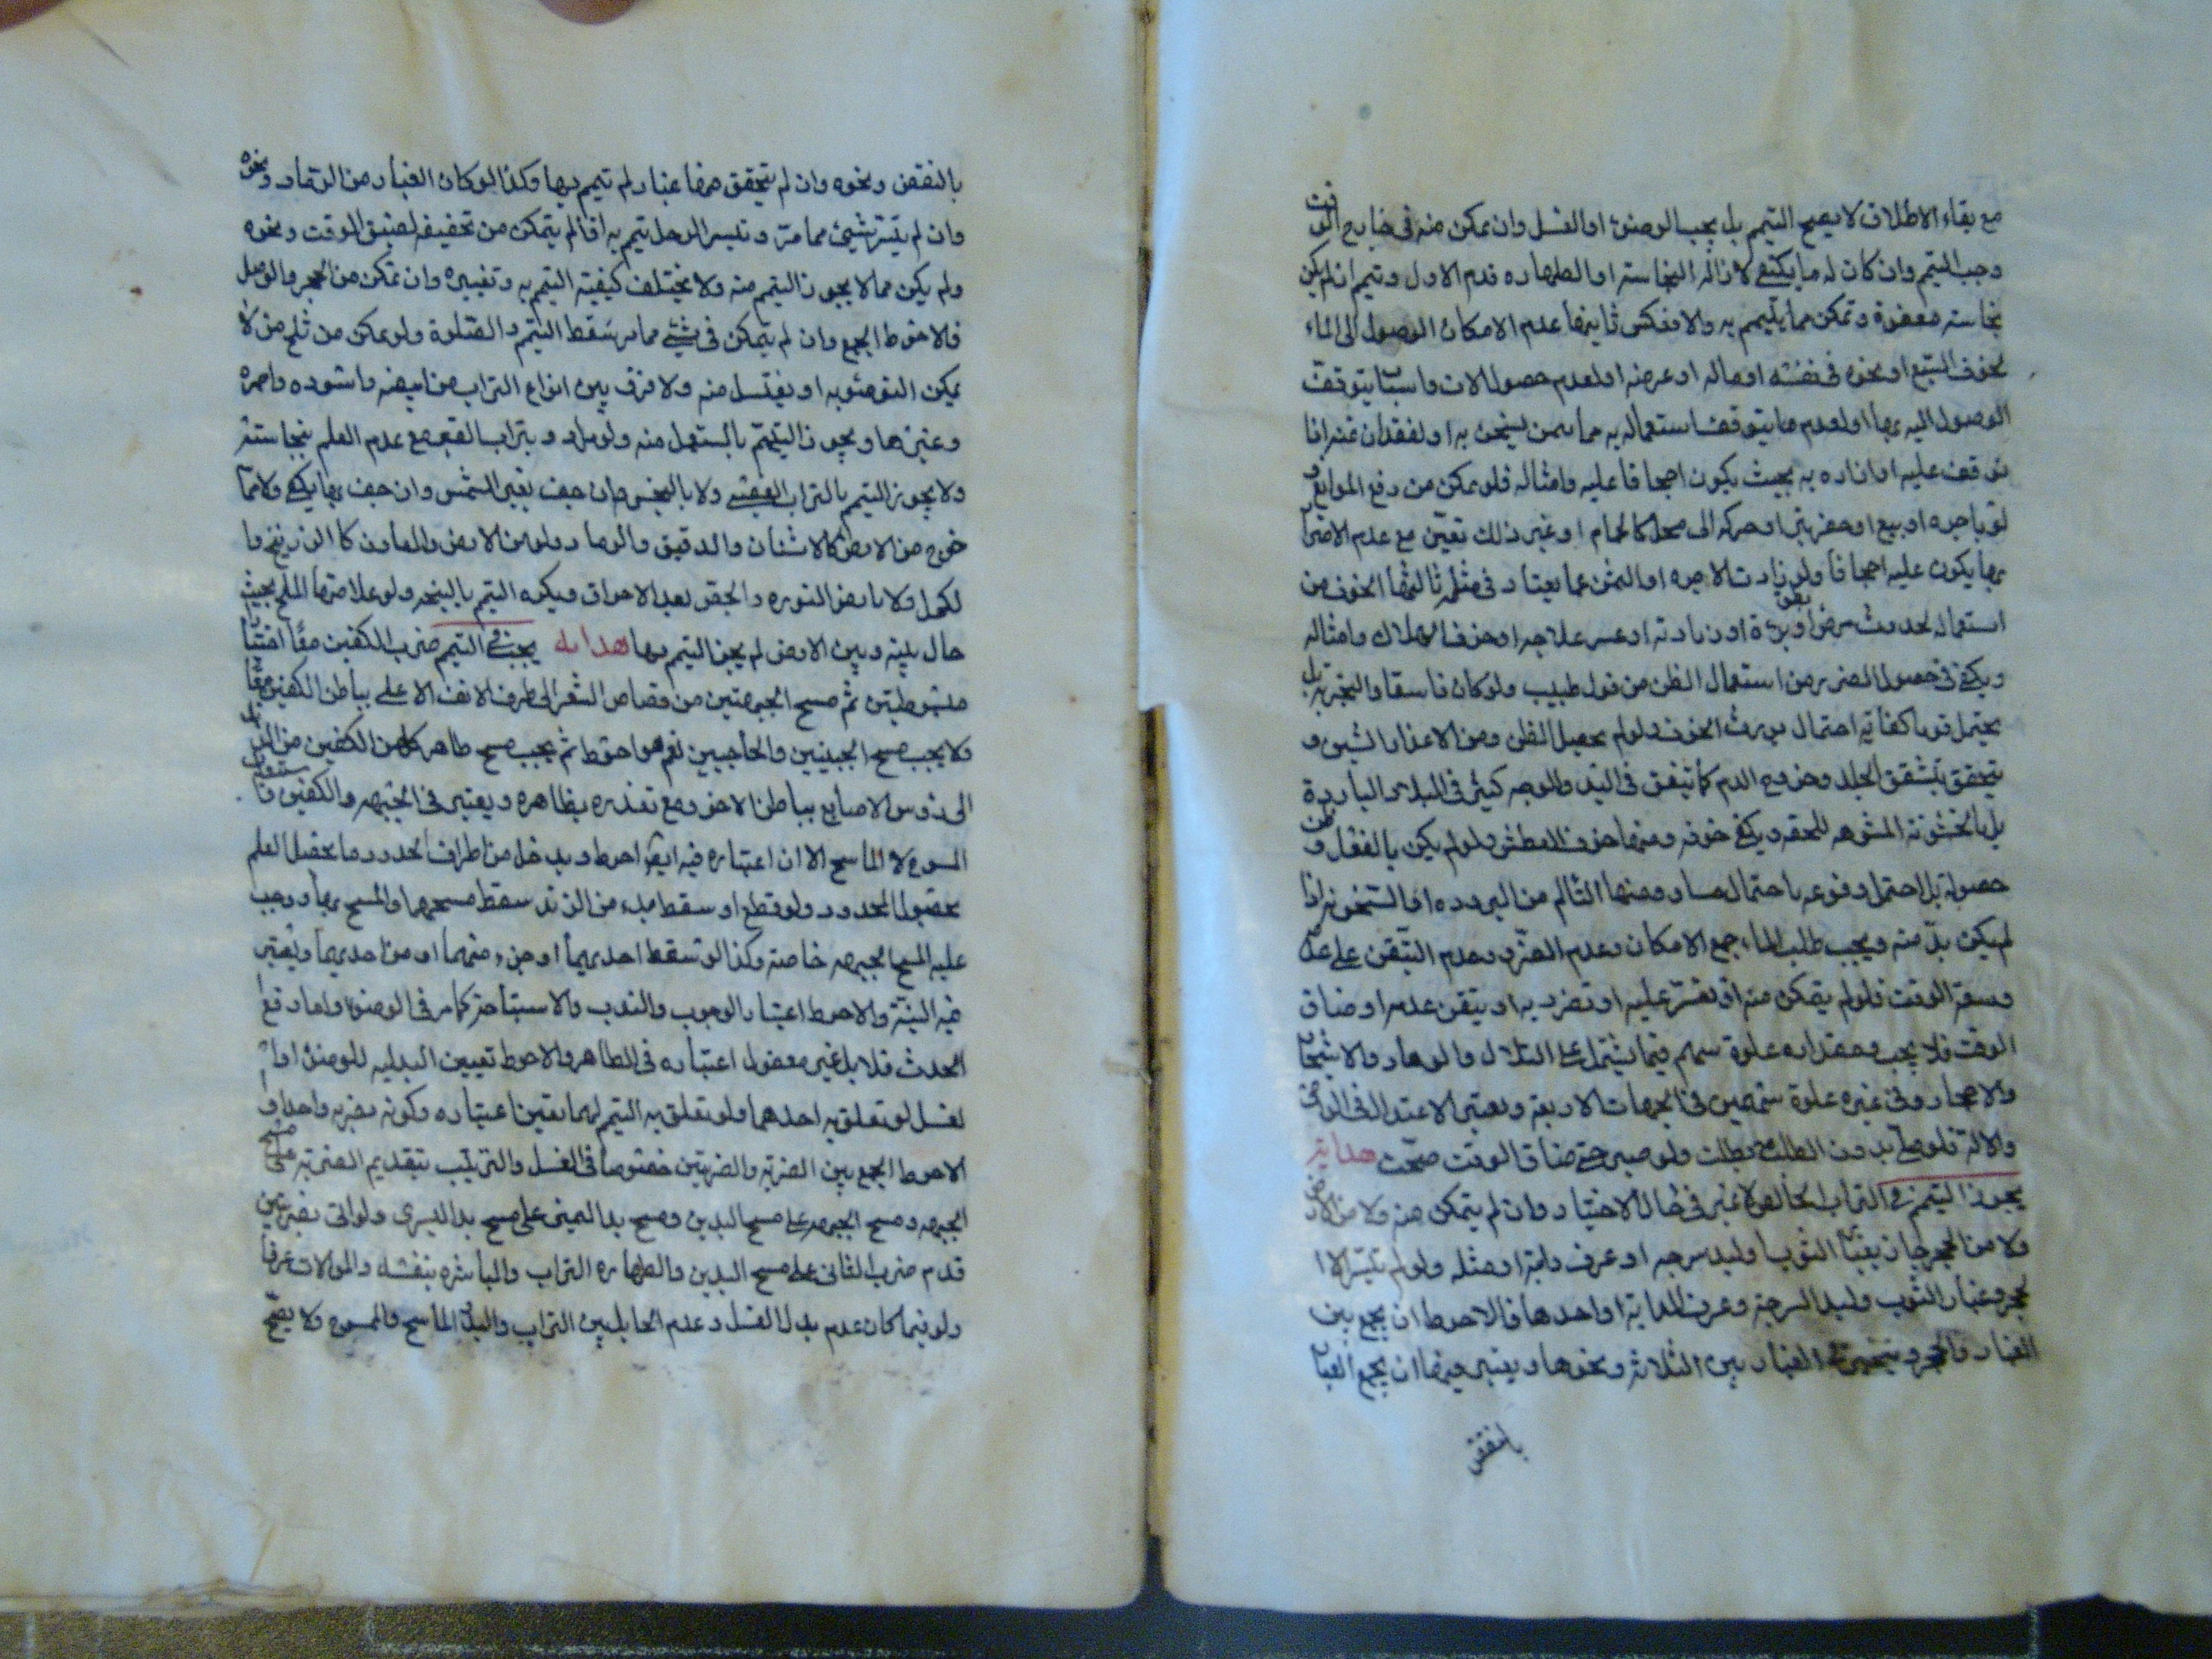 مع بقاء الاطلاق لا يصح التيمم بل يجب الوضوء او الغسل وان تمكن منه في خارج الوقت
وجب التيمم وان كان له ما يكفي لازالة النجاسة او الطهاره قدم الاول وتيمم ان لم يكن
نجاسته معفوة وتمكن مما يتيمم به والا فعكس ثانيها عدم الامكان الوصول الى الماء
لخوف السبع او نحوه في نفسه او ماله او عرضه او لعدم حصول الات واسباب يتوقف
الوصول اليه بها او لعدم ما يتوقف استعماله به مما يسخن به او لفقدان ثمن اذا
توقف عليه او اناره به بحيث يكون اجحافا عليه وامثاله فلو تمكن من رفع الموانع و
لو باجره او بيع او حفر بئر او حركه الى محل كالحمام او غير ذلك تعين مع عدم الاضرار
بما يكون عليه اجحافا ولو زادت الاجره او الثمن عما يعتاد في مثله ثالثها الخوف من
استعماله لحدوث مرض او بقؤ برءه او زيادته او عسر علاجه او خوف الهلاك وامثاله
ويكفي في حصول الضرر من استعمال الظن من قول طبيب ولو كان فاسقا والتجربه بل
يحتمل قويا كفاية احتمال يورث الخوف ولو لم يحصل الظن ومن الاعذار الشين و
يتحقق بتشقق الجلد وخروج الدم كما يتفق في اليد والوجه كثيرا في البلاد الباردة
بل بالخشونة المشوهه للخلقه ويكفي خوفه ومنها خوف العطش ولو لم يكن بالفعل و ظن
حصوله بل احتمل وقوعه باحتمال مساو ومنها التألم من البروده او السخونه اذا
لم يكن بد منه ويجب طلب الماء مع الامكان وعدم العسر وعدم التيقن على عدمه
وسعة الوقت فلو لم يتمكن منه او تعسر عليه او تضرر به او يتيقن عدمه او ضاق
الوقت فلا يجب ومقداره غلوة سهم فيما يشتمل على التلال والوهاد والاشجار
والاحجار وفي غيره غلوة سهمين في الجهات الاربعة ويعتبر الاعتدال في الرامي
والالة فلو صلى بدون الطلب بطلت ولو صبر حتى ضاق الوقت صحت هداية
يجوز التيمم في التراب الخالص لا غير في حال الاختيار وان لم يتمكن منه ولا من الارض
ولا من الحجر جاز بغبار الثوب او لبد سرجه او عرف دابة او مثله ولو لم تيسر الا
حجر وغبار الثوب ولبد السرجة وعرف الدابة او احدها فالاحوط ان يجمع بين
الغبار والحجر ويتخير في الغبار بين الثلاثة ونحوها ويعتبر فيها ان يجمع الغبار
بالنفض
بالنفض ونحوه وان لم يتحقق معها غبار لم تيمم بها وكذا لو كان الغبار من الرماد ونحوه
وان لم يتيسر شيئ مما مر وتيسر الوحل تيمم به اذا لم يتمكن من تجفيفه لضيق الوقت ونحوه
ولم يكن مما لا يجوز التيمم منه ولا يختلف كيفية التيمم به وتغييره وان تمكن من الحجر والوحل
فالاحوط الجمع وان لم يتمكن في شيئ مما مر سقط التيمم والصلوة ولو تمكن من ثلج من لا
يمكن التوضئ به او يغتسل منه ولا فرق بين انواع التراب من ابيضه واسوده واحمره
وغيرها ويجوز التيمم بالمستعمل منه ولو مرارا وبتراب القبر مع عدم العلم بنجاسته
ولا يجوز التيمم بالتراب الغصبي ولا بالنجس وان جف بغير الشمس وان جف بها يكفي ولا مما
خرج من الارض كالاشنان والدقيق والرماد ولو من الارض والمعادن كالزرنيخ وا
لكحل ولا بارض النوره والجص بعد الاحراق ويكره التيمم بالسبخه ولو علا منها الملح بحيث
حال بينه وبين الارض لم يجز التيمم بها هداية يجب في التيمم ضرب الكفين معا اختيارا
مبسوطتين ثم مسح الجبهتين من قصاص الشعر الى طرف الانف الاعلى بباطن الكفين معا
ولا يجب مسح الجبينين والحاجبين نعم هو احوط ثم يجب مسح ظاهر كل من الكفين من الزند
الى رؤس الاصابع بباطن الاخرى ومع تعذره بظاهره ويعتبر في الجبهه والكفين
الممسوح لا الماسح الا ان اعتباره فيه ايضا احوط ويدخل من اطراف الحدود ما يحصل العلم
بحصول المحدود ولو قطع او سقط يده من الزند سقط مسحهما والمسح بها ووجب
عليه المسح الجبهه خاصة وكذا لو سقط احديهما او جزء منهما او من احديهما ويعتبر
فيه النية والاحوط اعتبار الوجوب والندب والاستباحة كما مر في الوضوء واما رفع
الحدث فلا بل غير معقول اعتباره في الظاهر والاحوط تعيين البدليه للوضوء او ا
لغسل لو تعلق به احدهما ولو تعلق به التيمم لهما تعين اعتباره وكونه بضربه واحده و
الاحوط الجمع بين الضربة والضربتين خصوصا في الغسل والترتيب بتقديم الضربة على مسح
الجبهه ومسح الجبهه على مسح اليدين ومسح يد اليمنى على مسح يد اليسرى ولو اتى بضربتين
قدم ضرب الثاني على مسح اليدين والطهاره التراب والمباشره بنفسه والموالات عرفا
ولو فيما كان عدم بدل الغسل وعدم الحايل بين التراب واليد الماسح والممسوح ولا يصح